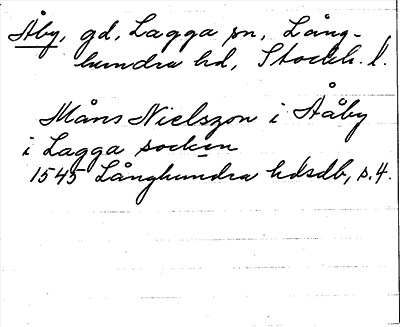 Åby, gd, Lagga sn, Lång-
hundra hd, Stockh. l.
Måns Nielszon i Aåby
i Lagga socken
1545 Långhundra hdsdb, s. 4.